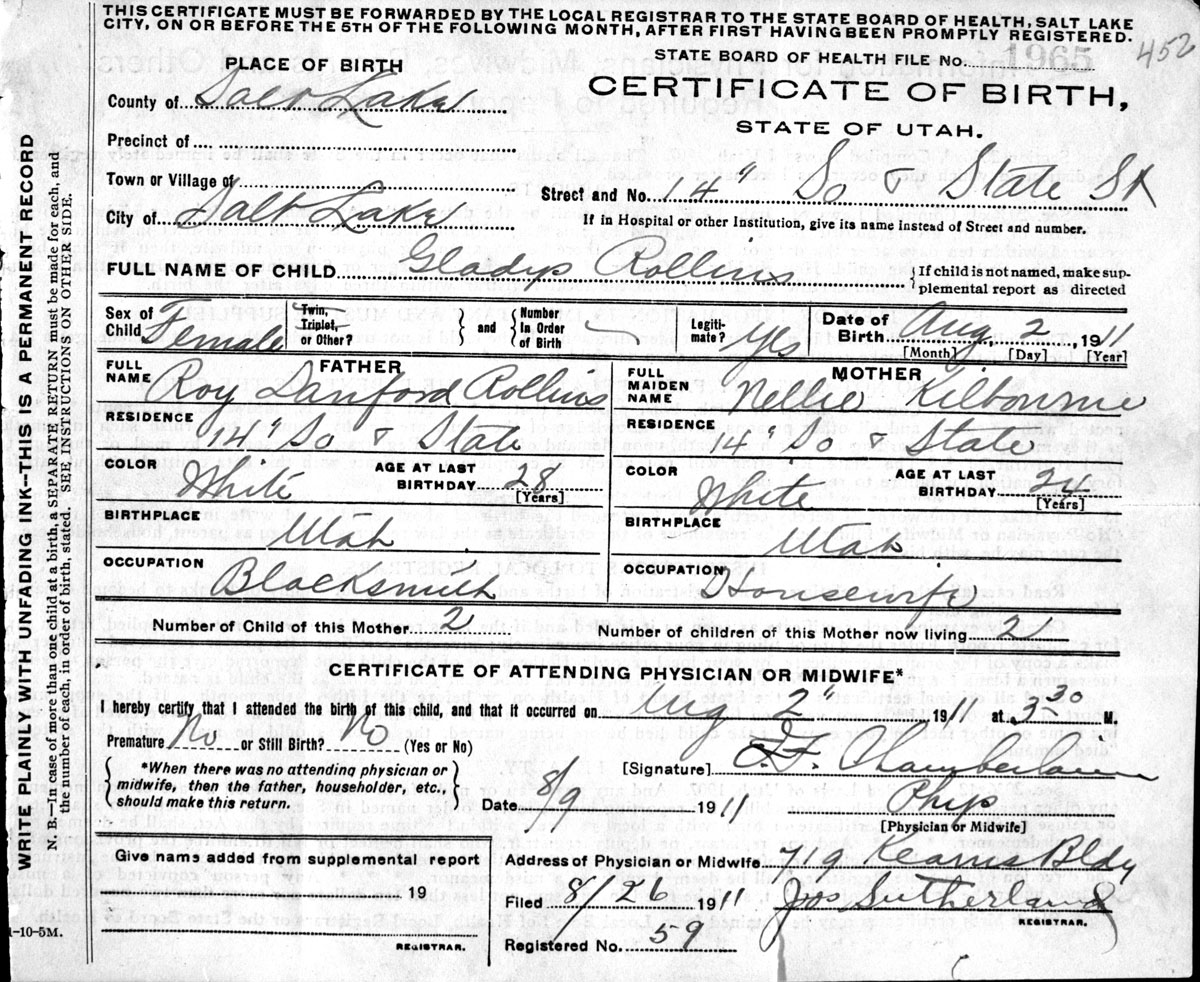 THIS CERTIFICATE MUST BE FORWARDED BY THE LOCAL REGISTRAR TO THE STATE BOARD OF HEALTH, SALT LAKE
CITY, ON OR BEFORE THE 5TH OF THE FOLLOWING MONTH, AFTER FIRST HAVING BEEN PROMPTLY REGISTERED.
452
STATE BOARD OF HEALTH FILE No. 1965
PLACE OF BIRTH
CERTIFICATE OF BIRTH,
STATE OF UTAH.
County of Salt Lake
Precinct of
Town or Village of
Street and No. 14" So & State St
City of Salt Lake
If in Hospital or other Institution, give its name instead of Street and number.
FULL NAME OF CHILD Gladys Rollins
{ If child is not named, make sup-
plemental report as directed
Sex of Child Female
Twin, Triplet, or Other?
{ and } Number In Order of Birth
Legiti-mate? Yes
Date of Birth Aug. 2, 1911
[Month] [Day] [Year]
FATHER
FULL NAME Roy Sanford Rollins
RESIDENCE 14" So & State
COLOR White
AGE AT LAST BIRTHDAY 28
[Years]
BIRTHPLACE Utah
OCCUPATION Blacksmith
MOTHER
FULL MAIDEN NAME Nellie Kilbourne
RESIDENCE 14" So & State
COLOR White
AGE AT LAST BIRTHDAY
[Years]
BIRTHPLACE Utah
OCCUPATION Housewife
Number of Child of this Mother 2
Number of children of this Mother now living 2
CERTIFICATE OF ATTENDING PHYSICIAN OR MIDWIFE*
I hereby certify that I attended the birth of this child, and that it occurred on Aug 2" 1911 at 3-30 M.
Premature No or Still Birth? No (Yes or No)
{ *When there was no attending physician or
midwife, then the father, householder, etc.,
should make this return. }
[Signature] Chamberlain
Date 8/9 1911
Phys
[Physician or Midwife]
Give name added from supplemental report
19
REGISTRAR.
Address of Physician or Midwife 719 Kearns Bldg
Filed 8/26 1911 Jos Sutherland
REGISTRAR.
Registered No. 59
WRITE PLAINLY WITH UNFADING INK—THIS IS A PERMANENT RECORD
N. B.—In case of more than one child at a birth, a SEPARATE RETURN must be made for each, and
the number of each, in order of birth, stated. SEE INSTRUCTIONS ON OTHER SIDE.
1-10-5M.